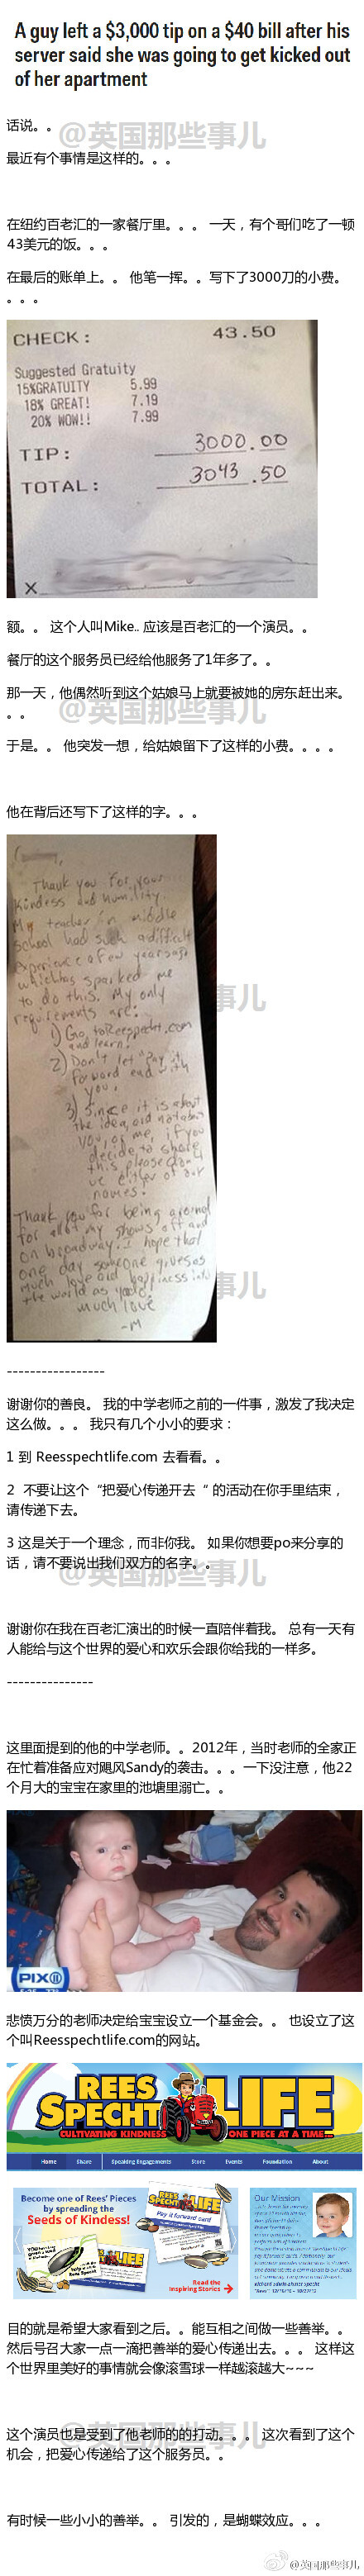 A guy left a $3,000 tip on a $40 bill after his
server said she was going to get kicked out
of her apartment
@英国那些事儿
话说。。
最近有个事情是这样的。。。
在纽约百老汇的一家餐厅里。。。 一天，有个哥们吃了一顿
43美元的饭。。。
在最后的账单上。。 他笔一挥。。写下了3000刀的小费。
。。。
CHECK: 43.50
Suggested Gratuity
15%GRATUITY 5.99
18% GREAT! 7.19
20% WOW!! 7.99
TIP: 3000.00
TOTAL: 3043.50
X
额。。 这个人叫Mike.. 应该是百老汇的一个演员。。
餐厅的这个服务员已经给他服务了1年多了。。
那一天，他偶然听到这个姑娘马上就要被她的房东赶出来。
。。
@英国那些事儿
于是。。 他突发一想，给姑娘留下了这样的小费。。。。
他在背后还写下了这样的字。。。
Thank you for your
kindness and humility
My teacher in middle
school had such a difficult
experience a few years ago
which has sparked me
to do this. My only
requirements are:
1) Go to ReesSpecht.com
and learn.
2) Don't let "Pay it
forward end with
you.
3) Since it is about
the idea and not about
you, or me, if you
decide to share
this, please don't
use either of our
names.
Thank you for being around
for all my shows off and
on broadway. I hope that
one day someone gives as
much love and happiness into
the world as you do.
much love
-M
事儿
事儿
-----------------
谢谢你的善良。 我的中学老师之前的一件事，激发了我决定
这么做。。。 我只有几个小小的要求：
1 到 Reesspechtlife.com 去看看。。
2 不要让这个“把爱心传递开去“ 的活动在你手里结束，
请传递下去。
3 这是关于一个理念，而非你我。 如果你想要po来分享的
话，请不要说出我们双方的名字。。
@英国那些事儿
谢谢你在我在百老汇演出的时候一直陪伴着我。 总有一天有
人能给与这个世界的爱心和欢乐会跟你给我的一样多。
---------------
这里面提到的他的中学老师。。2012年，当时老师的全家正
在忙着准备应对飓风Sandy的袭击。。。一下没注意，他22
个月大的宝宝在家里的池塘里溺亡。。
PIX11
悲愤万分的老师决定给宝宝设立一个基金会。。 也设立了这
个叫Reesspechtlife.com的网站。
REES
SPECHT LIFE
CULTIVATING KINDNESS ONE PIECE AT A TIME...
Home Share Speaking Engagements Store Events Foundation About
Become one of Rees' Pieces
by spreading the
Seeds of Kindness!
Pay it forward card!
Read the
Inspiring Stories
Our Mission
目的就是希望大家看到之后。。能互相之间做一些善举。。
然后号召大家一点一滴把善举的爱心传递出去。。。 这样这
个世界里美好的事情就会像滚雪球一样越滚越大~~~
这个演员也是受到了他老师的的打动。。。 这次看到了这个
机会，把爱心传递给了这个服务员。。
@英国那些事儿
有时候一些小小的善举。。 引发的，是蝴蝶效应。。。
@英国那些事儿